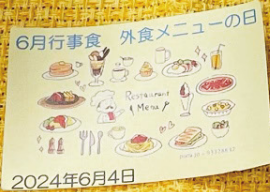 6月行事食　外食メニューの日
Restaurant
Menu
2024年6月4日